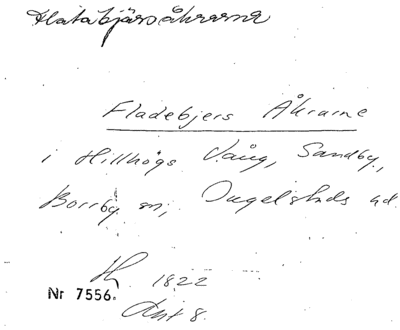 Flatabjärsåkrarna
Fladebjers Åkrarne
i Hillhögs Vång, Sandby,
Borrby sn, Ingelstads hd.
1822
Nr 7556.
Akt 8.